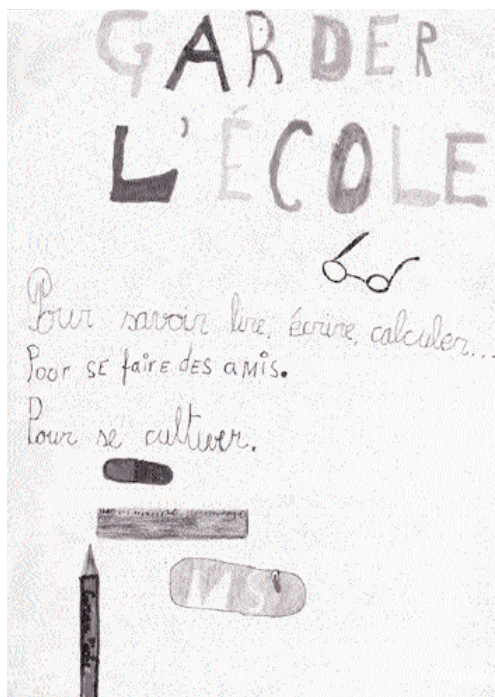 GARDER
L'ÉCOLE
Pour savoir lire, écrire, calculer...
Pour SE faiRE dES aMis.
Pour se cultiver.